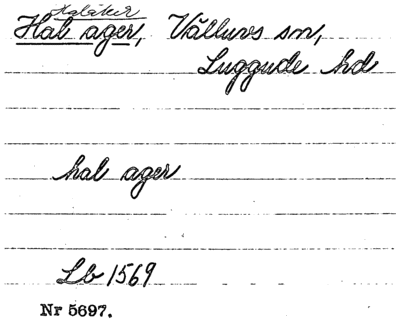 Halåker
Hal ager, Vålluvs sn,
Luggude hd
hal ager
Lb 1569
Nr 5697.